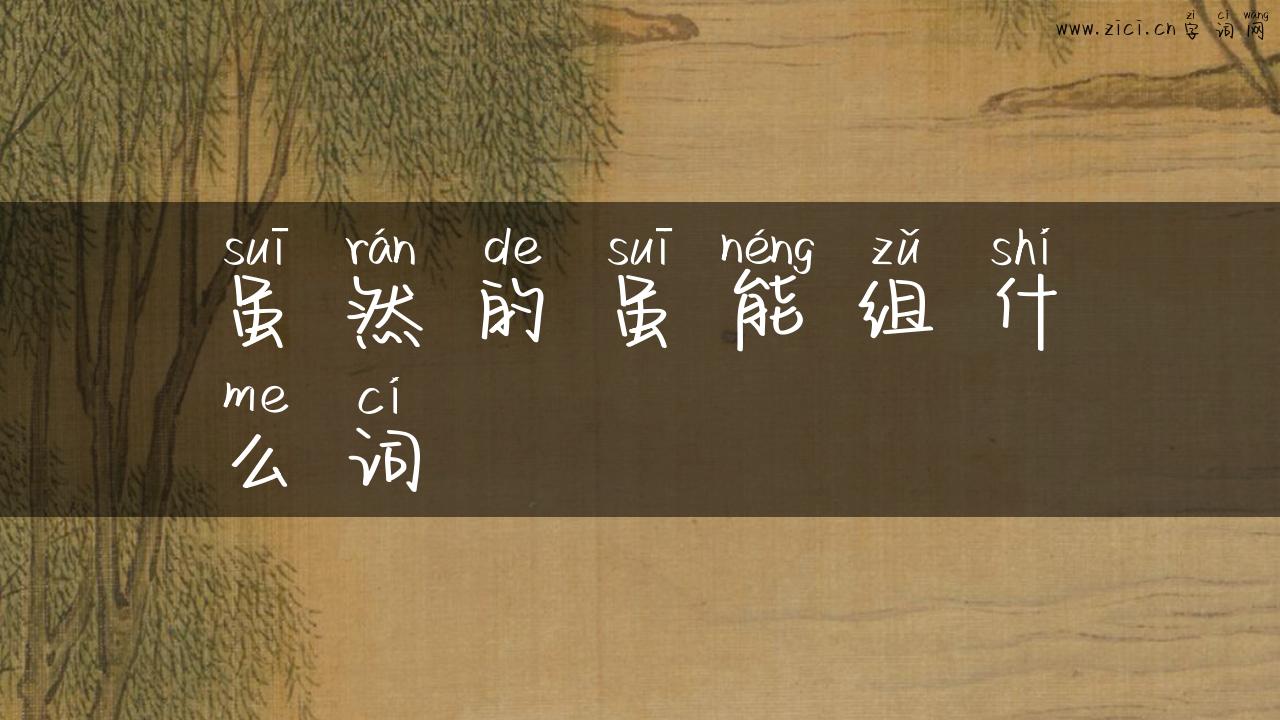 zì cí wǎng
www.zici.cn 字词网
suī rán de suī néng zǔ shí
虽然的虽能组什
me cí
么词